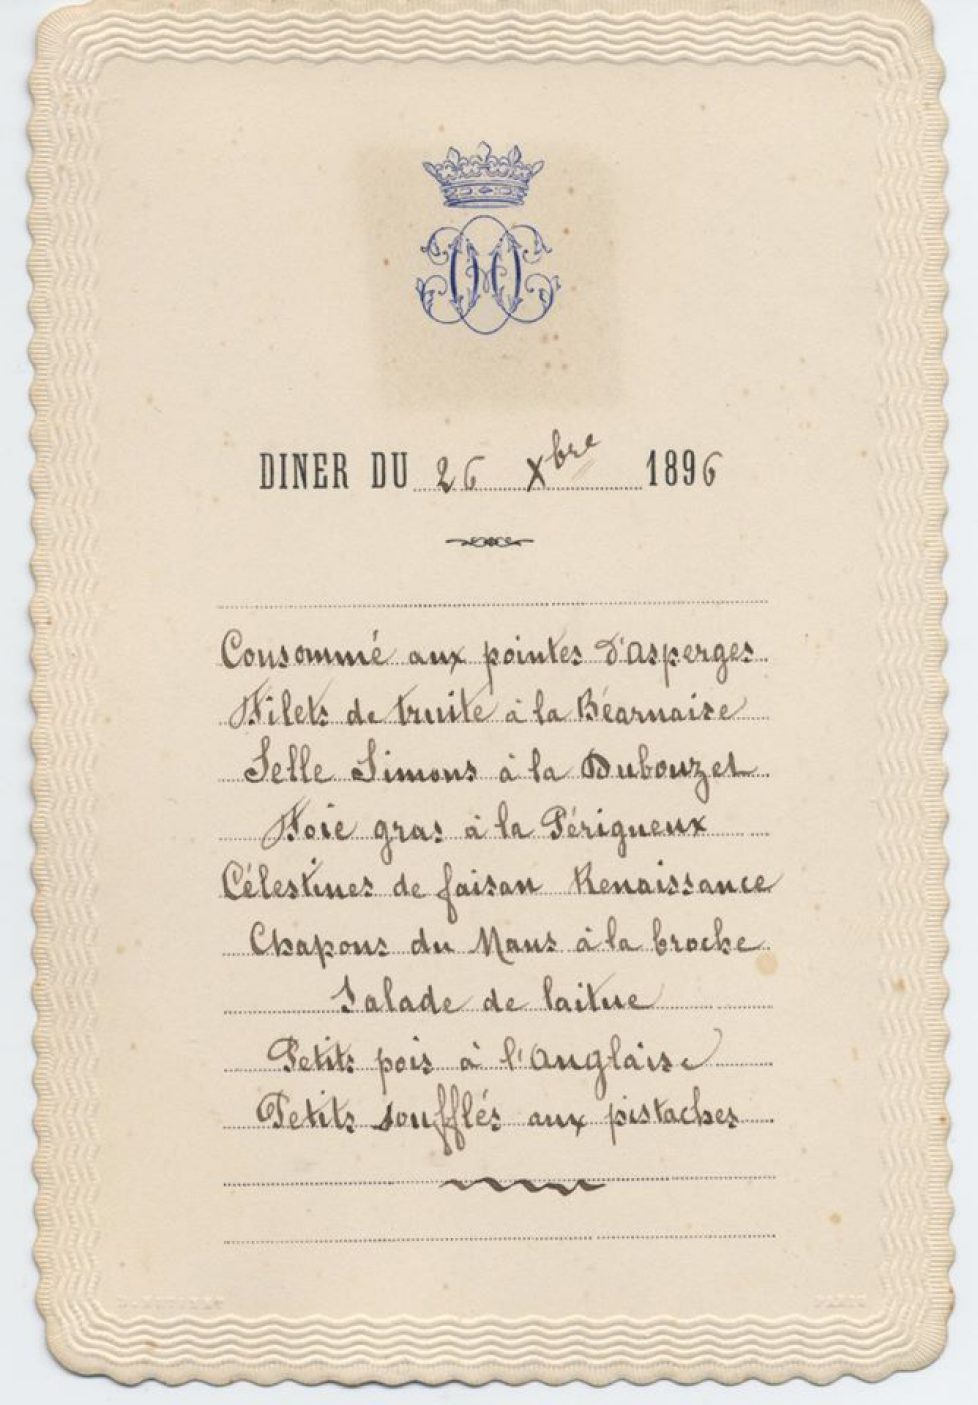 DINER DU 26 Xbre 1896
Consommé aux pointes d'asperges
Filets de truite à la Béarnaise
Selle Simons à la Dubouzet
Foie gras à la Périgueux
Célestines de faisan Renaissance
Chapons du Mans à la broche
Salade de laitue
Petits pois à l'anglaise
Petits soufflés aux pistaches